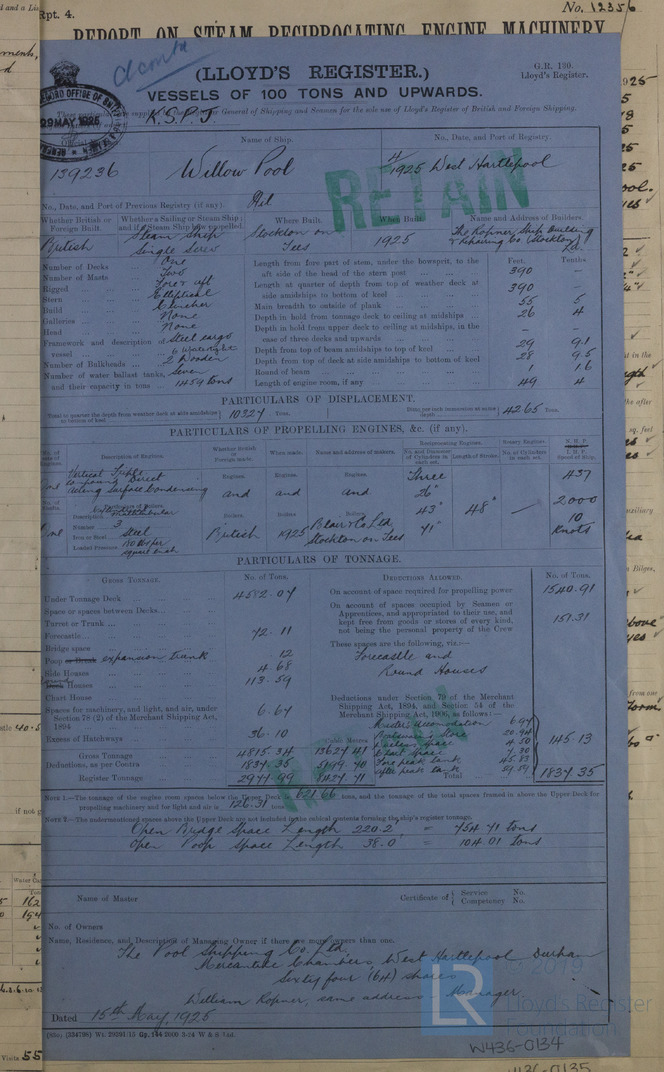 Rpt. 4.
No. 12356
REPORT ON STEAM RECIPROCATING ENGINE MACHINERY
(LLOYD'S REGISTER.)
G.R. 130.
Lloyd's Register.
VESSELS OF 100 TONS AND UPWARDS.
General of Shipping and Seamen for the sole use of Lloyd's Register of British and Foreign Shipping.
29 MAY 1925
K.S.P.J.
Name of Ship.
No., Date, and Port of Registry.
139236
Willow Pool
4/1925 West Hartlepool
RETAIN
No., Date, and Port of Previous Registry (if any).
Nil
Whether British or Foreign Built.
Whether a Sailing or Steam Ship; and if a Steam Ship how propelled
Where Built.
When Built.
Name and Address of Builders.
British
Steam Ship
Single Screw
Stockton on Tees
1925
The Ropner Ship Building & Repairing Co (Stockton) Ld.
Number of Decks One
Number of Masts Two
Rigged Fore & aft
Stern Elliptical
Build Clincher
Galleries None
Head None
Framework and description of vessel Steel cargo
Number of Bulkheads 6 Watertight 2 Wooden
Number of water ballast tanks, Seven
and their capacity in tons 1459 tons
Feet. Tenths
Length from fore part of stem, under the bowsprit, to the aft side of the head of the stern post 390 –
Length at quarter of depth from top of weather deck at side amidships to bottom of keel 390 –
Main breadth to outside of plank 55 5
Depth in hold from tonnage deck to ceiling at midships 26 4
Depth in hold from upper deck to ceiling at midships, in the case of three decks and upwards – –
Depth from top of beam amidships to top of keel 29 9.1
Depth from top of deck at side amidships to bottom of keel 28 9.5
Round of beam 1 1.6
Length of engine room, if any 49 4
PARTICULARS OF DISPLACEMENT.
Total to quarter the depth from weather deck at side amidships to bottom of keel 10327 Tons.
Ditto per inch immersion at same depth 42.65 Tons.
PARTICULARS OF PROPELLING ENGINES, &c. (if any).
No. of sets of Engines.
Description of Engines.
Whether British or Foreign made.
When made.
Name and address of makers.
Reciprocating Engines.
No. and Diameter of Cylinders in each set.
Length of Stroke.
Rotary Engines.
No. of Cylinders in each set.
N.H.P.
I.H.P.
Speed of Ship.
One
Vertical Triple Compounding Direct Acting Surface Condensing
Engines. and Boilers
British
Engines. and Boilers
1925
Engines. and Boilers
Blair & Co Ltd
Stockton on Tees
Three
26"
43"
71"
48"
437
2,000
10 Knots
Description
Number 3
Iron or Steel Steel
Loaded Pressure 180 lbs per square inch
PARTICULARS OF TONNAGE.
GROSS TONNAGE.
No. of Tons.
DEDUCTIONS ALLOWED.
No. of Tons.
Under Tonnage Deck 4582.07
Space or spaces between Decks
Turret or Trunk
Forecastle 72.11
Bridge space
Poop or Break expansion trunk .12
Side Houses 4.68
Round Houses 113.59
Chart House
Spaces for machinery, and light, and air, under Section 78 (2) of the Merchant Shipping Act, 1894 6.67
Excess of Hatchways 36.10
Gross Tonnage 4815.34 13627.41
Deductions, as per Contra 1837.35 5199.70
Register Tonnage 2977.99 8427.71
On account of space required for propelling power 1540.91
On account of spaces occupied by Seamen or Apprentices, and appropriated to their use, and kept free from goods or stores of every kind, not being the personal property of the Crew 151.31
These spaces are the following, viz.:—
Forecastle and
Round Houses
Deductions under Section 79 of the Merchant Shipping Act, 1894, and Section 54 of the Merchant Shipping Act, 1906, as follows:—
Master's Accomodation 6.97
Boatswain's Store 20.94
Wireless space 4.50
Chart space 7.30
Fore peak tank 45.83
After peak tank 59.59
145.13
Total 1837.35
NOTE 1.—The tonnage of the engine room spaces below the Upper Deck is 621.66 tons, and the tonnage of the total spaces framed in above the Upper Deck for propelling machinery and for light and air is 126.31 tons.
NOTE 2.—The undermentioned spaces above the Upper Deck are not included in the cubical contents forming the ship's register tonnage.
Open Bridge Space Length 220.2 = 754.71 tons
Open Poop Space Length 38.0 = 104.01 tons
Name of Master
Certificate of Service No.
Competency No.
No. of Owners
Name, Residence, and Description of Managing Owner if there are more owners than one.
The Pool Shipping Co. Ltd.
Mercantile Chambers, West Hartlepool Durham
Sixty four (64) shares
William Ropner, same address – Manager
Dated 15th May, 1925
© 2019
LR
Lloyd's Register
Foundation
W436-0134
W436-0135